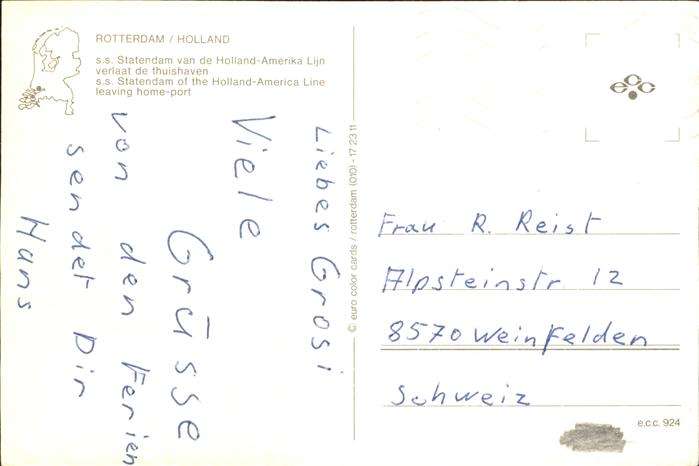 ROTTERDAM / HOLLAND
s.s. Statendam van de Holland-Amerika Lijn
verlaat de thuishaven
s.s. Statendam of the Holland-America Line
leaving home-port
Liebes Grosi
Viele
Grüsse
von den Ferien
sendet Dir
Hans
© euro color cards / rotterdam (010) - 17 23 11
ecc
Frau R. Reist
Alpsteinstr 12
8570 Weinfelden
Schweiz
e.c.c. 924